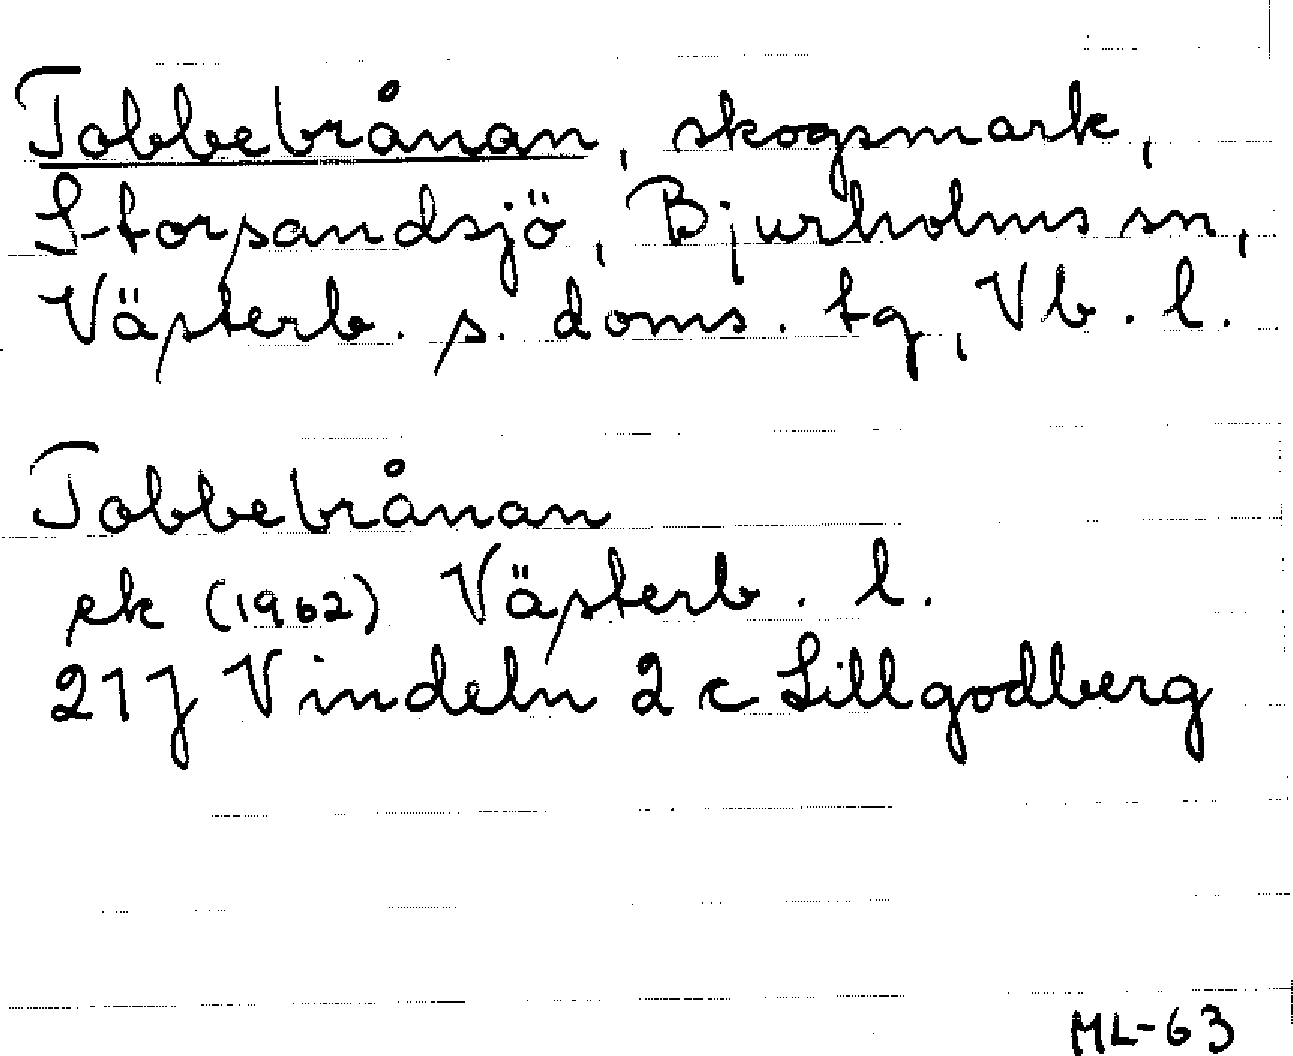 Tobbebrånan, skogsmark,
Storsandsjö, Bjurholms sn,
Västerb. s. doms. tg, Vb. l.
Tobbebrånan
ek (1962) Västerb. l.
21J Vindeln 2 c Lillgodberg
ML-63